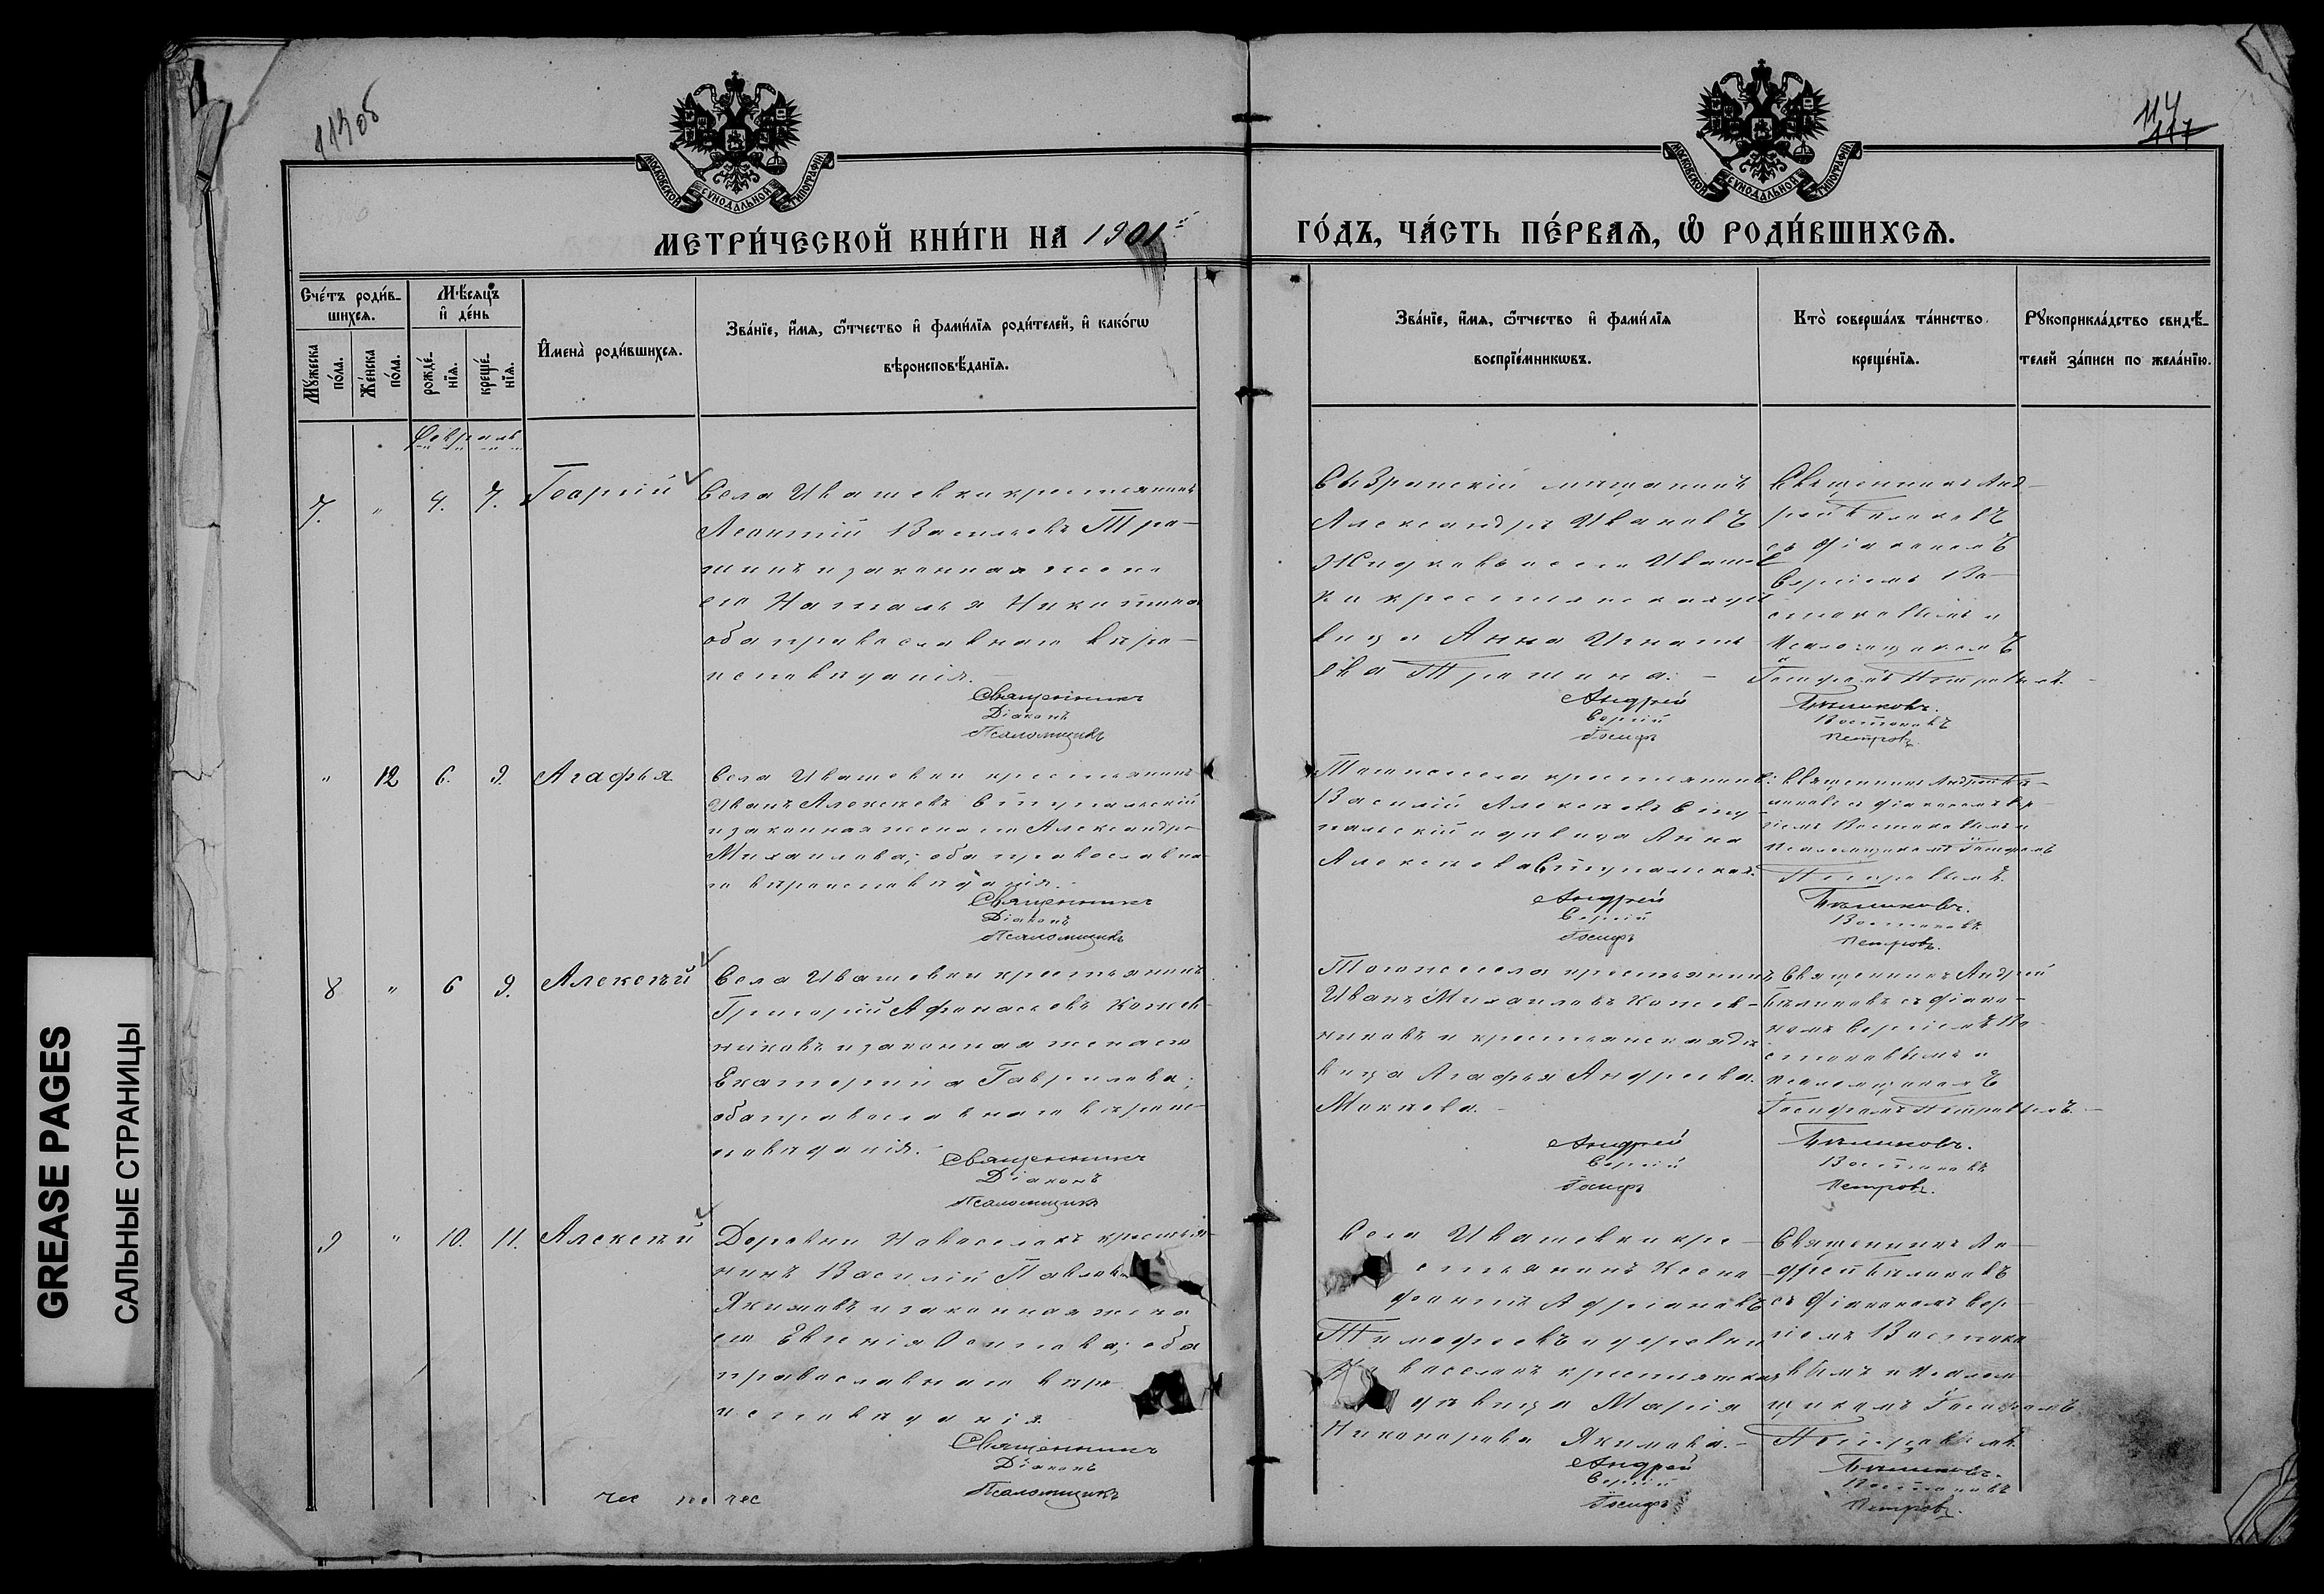 113об
114
117
МОСКОВСКОЙ СУНОДАЛЬНОЙ ТИПОГРАФІИ
МОСКОВСКОЙ СУНОДАЛЬНОЙ ТИПОГРАФІИ
МЕТРИ́ЧЕСКОЙ КНИ́ГИ НА 1901й ГО́ДЪ, ЧА́СТЬ ПЕ́РВАѦ, Ѡ РОДИ́ВШИХСѦ.
Сче́тъ роди́в-
шихсѧ.
Мꙋ́жеска
по́ла.
Же́нска
по́ла.
Мѣ́сѧцъ
и҆ де́нь
рожде́-
нїѧ.
креще́-
нїѧ.
И҆мена̀ роди́вшихсѧ.
Зва́нїе, и҆́мѧ, ѻ҆́тчество и҆ фами́лїѧ роди́телей, и҆ како́гѡ
вѣроисповѣ́данїѧ.
Зва́нїе, и҆́мѧ, ѻ҆́тчество и҆ фами́лїѧ
воспрїе́мникѡвъ.
Кто̀ соверша́лъ та́инство
креще́нїѧ.
Рꙋкоприкла́дство свидѣ́-
телей за́писи по жела́нїю.
Февраль
7. " 4. 7. Георгій
Села Ивашевки крестьянинъ
Леонтій Васильевъ Тра-
шинъ и законная жена
его Наталья Никитина
оба православнаго вѣро-
исповѣданія.
Священникъ
Діаконъ
Псаломщикъ
Сызранскій мѣщанинъ
Александръ Ивановъ
Жидковъ и села Ивашев
ки крестьянская дѣ
вица Анна Игнать
ева Трашина. -
Андрей
Сергій
Іосифъ
Священникъ Анд-
рей Бѣликовъ
съ діакономъ
Сергіемъ Во-
стоковымъ и
псаломщикомъ
Іосифомъ Петровымъ. -
Бѣликовъ.
Востоковъ
Петровъ.
" 12 6. 9. Агафья
Села Ивашевки крестьянинъ
Иванъ Алексѣевъ
и законная жена его Александра
Михаилова; оба православна-
го вѣроисповѣданія. -
Священникъ
Діаконъ
Псаломщикъ
Тогоже села крестьянинъ
Василій Алексѣевъ
и дѣвица Анна
Алексѣева
Андрей
Сергій
Іосифъ
Священникъ Андрей Бѣ-
ликовъ съ діакономъ Сер-
гіемъ Востоковымъ и
псаломщикомъ Іосифомъ
Петровымъ.
Бѣликовъ.
Востоковъ
Петровъ.
8 " 6 9. Алексѣй
Села Ивашевки крестьянинъ
Григорій Афонасьевъ Кожев-
никовъ и законная жена его
Екатерина Гаврилова;
оба православнаго вѣроис-
повѣданія. -
Священникъ
Діаконъ
Псаломщикъ
Тогоже села крестьянинъ
Иванъ Михаиловъ Кожев-
никовъ и крестьянская дѣ
вица Агафья Андреева
Мокѣева. -
Андрей
Сергій
Іосифъ
Священникъ Андрей
Бѣликовъ съ діако-
номъ Сергіемъ Во-
стоковымъ и
псаломщикомъ
Іосифомъ Петровымъ. -
Бѣликовъ.
Востоковъ
Петровъ.
9 " 10. 11. Алексѣй
Деревни Новоселокъ крестья-
нинъ Василій Павловъ
Якимовъ и законная жена
его Евгенія Осипова; оба
православнаго вѣро
исповѣданія.
Священникъ
Діаконъ
Псаломщикъ
Села Ивашевки кре-
стьянинъ Ксено
фонтъ Адріановъ
Тимофеевъ и деревни
Новоселокъ крестьянская
дѣвица Марія
Никонорова Якимова. -
Андрей
Сергій
Іосифъ
Священникъ Ан-
дрей Бѣликовъ
съ діакономъ Сер-
гіемъ Востоко
вымъ и псалом
щикомъ Іосифомъ
Петровымъ.
Бѣликовъ.
Востоковъ
Петровъ.
GREASE PAGES
САЛЬНЫЕ СТРАНИЦЫ